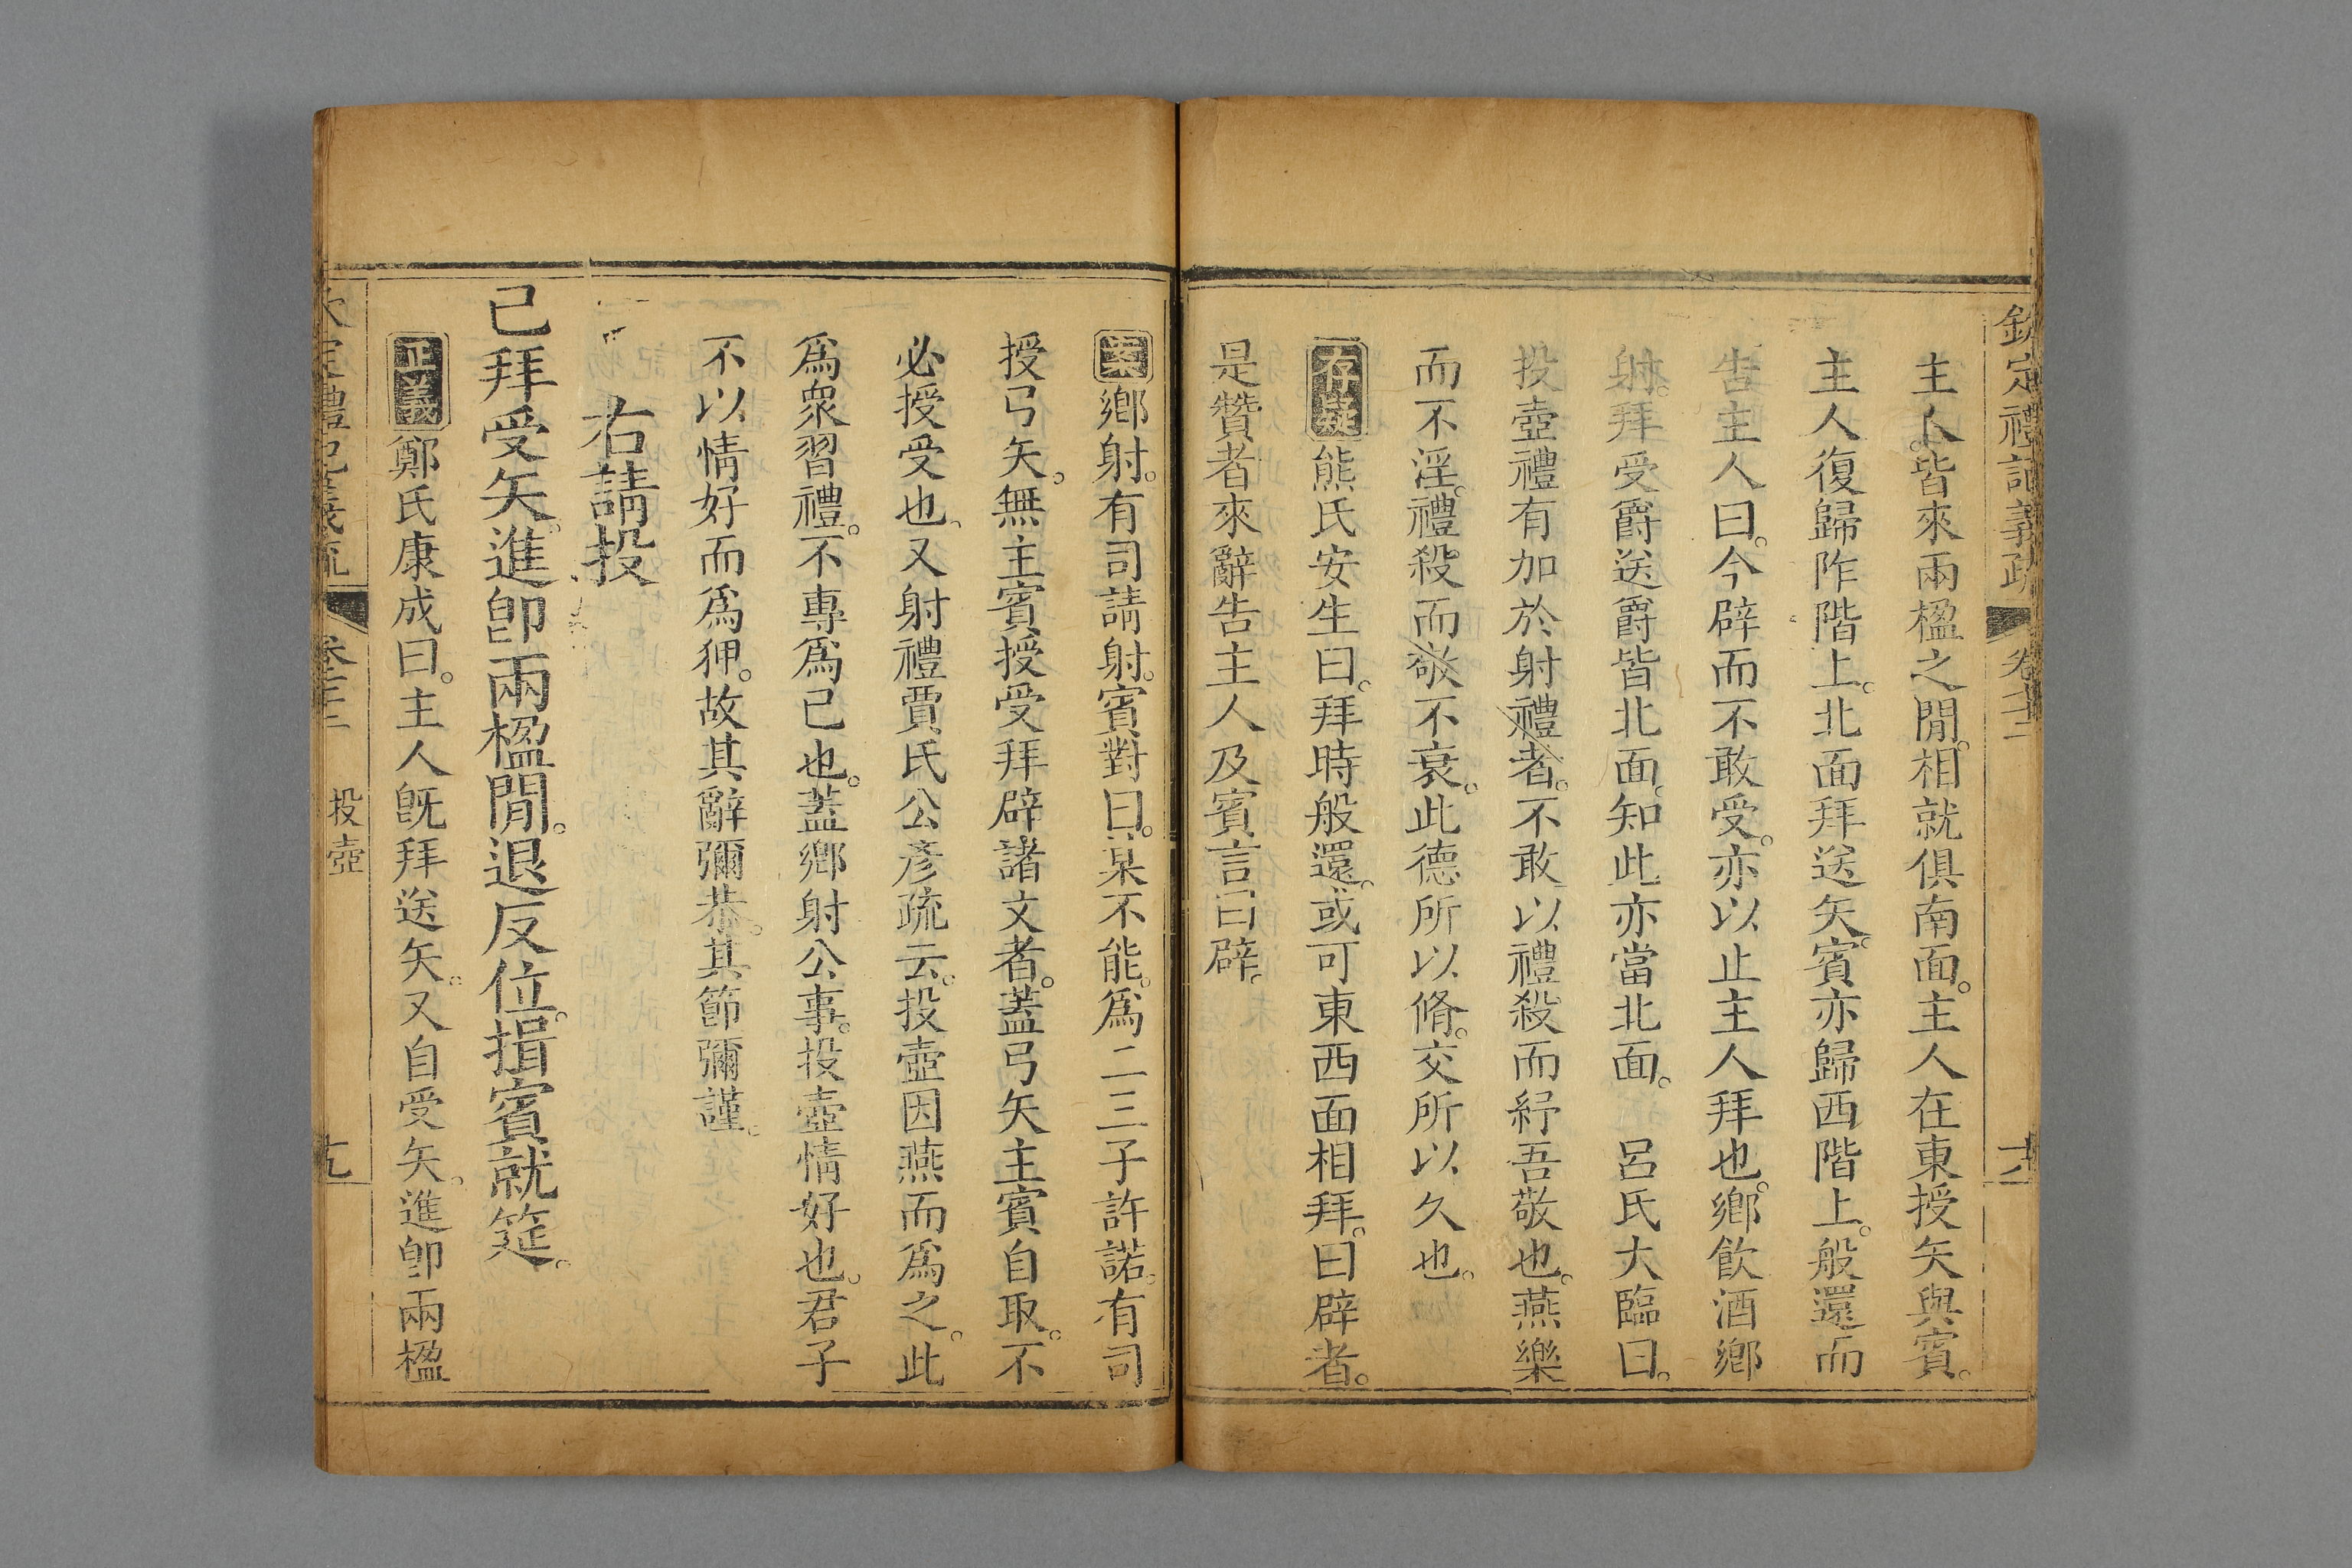 欽定禮記義疏 卷七十二
主人皆來兩楹之閒。相就俱南面。主人在東授矢與賓。
主人復歸阼階上。北面拜送矢。賓亦歸西階上。般還而
告主人曰。今辟而不敢受。亦以止主人拜也。鄉飲酒鄉
射。拜受爵送爵皆北面。知此亦當北面。 呂氏大臨曰。
投壺禮有加於射禮者。不敢以禮殺而紓吾敬也。燕樂
而不淫。禮殺而敬不衰。此德所以脩。交所以久也。
存疑熊氏安生曰。拜時般還。或可東西面相拜。曰辟者。
是贊者來辭告主人及賓言曰辟。
案鄉射。有司請射。賓對曰。某不能。爲二三子許諾。有司
授弓矢。無主賓授受拜辟諸文者。蓋弓矢主賓自取。不
必授受也。又射禮賈氏公彥疏云。投壺因燕而爲之。此
爲衆習禮。不專爲己也。蓋鄉射公事。投壺情好也。君子
不以情好而爲狎。故其辭彌恭。其節彌謹。
右請投
已拜受矢。進卽兩楹閒。退反位。揖賓就筵。
正義鄭氏康成曰。主人旣拜送矢。又自受矢。進卽兩楹
投壺